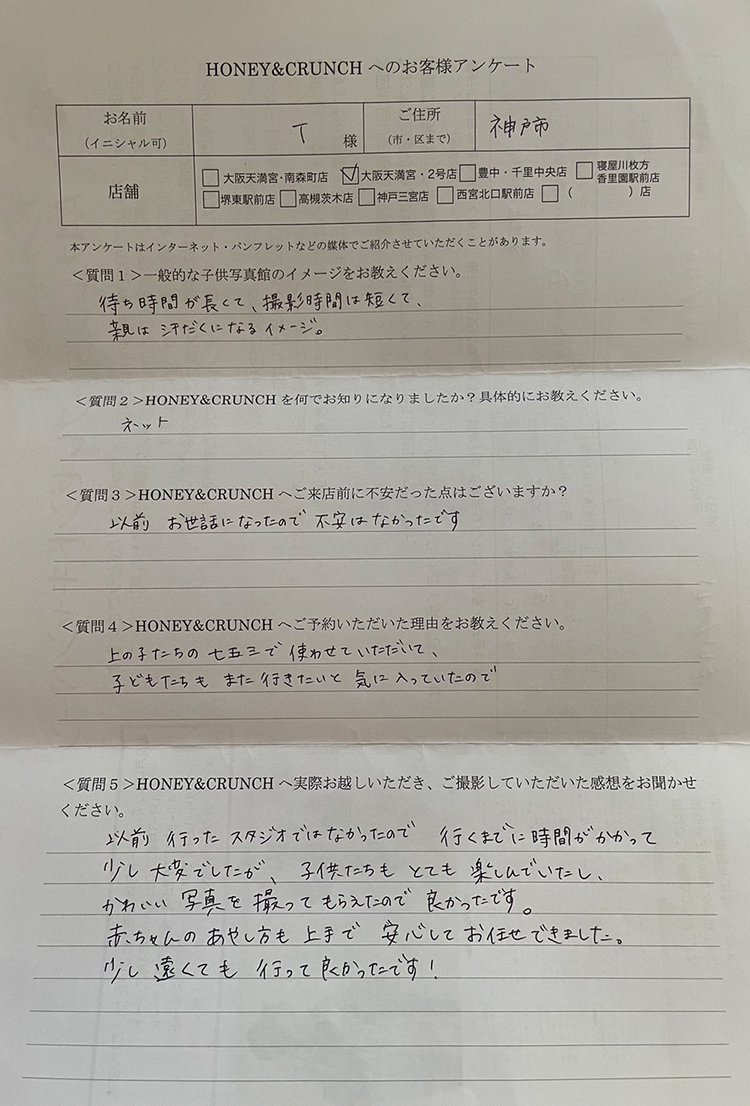 HONEY&CRUNCH へのお客様アンケート
お名前
(イニシャル可)
T 様
ご住所
(市・区まで)
神戸市
店舗
大阪天満宮・南森町店 ☑大阪天満宮・2号店 豊中・千里中央店 寝屋川枚方香里園駅前店
堺東駅前店 高槻茨木店 神戸三宮店 西宮北口駅前店 ( )店
本アンケートはインターネット・パンフレットなどの媒体でご紹介させていただくことがあります。
<質問1>一般的な子供写真館のイメージをお教えください。
待ち時間が長くて、撮影時間は短くて、
親は汗だくになるイメージ。
<質問2>HONEY&CRUNCH を何でお知りになりましたか?具体的にお教えください。
ネット
<質問3>HONEY&CRUNCH へご来店前に不安だった点はございますか?
以前 お世話になったので 不安はなかったです
<質問4>HONEY&CRUNCH へご予約いただいた理由をお教えください。
上の子たちの 七五三で 使わせていただいて、
子どもたちも また行きたいと 気に入っていたので
<質問5>HONEY&CRUNCH へ実際お越しいただき、ご撮影していただいた感想をお聞かせ
ください。
以前 行った スタジオではなかったので 行くまでに時間がかかって
少し 大変でしたが、子供たちも とても 楽しんでいたし、
かわいい 写真を 撮って もらえたので 良かったです。
赤ちゃんの あやし方も 上手で 安心して お任せできました。
少し 遠くても 行って良かったです!